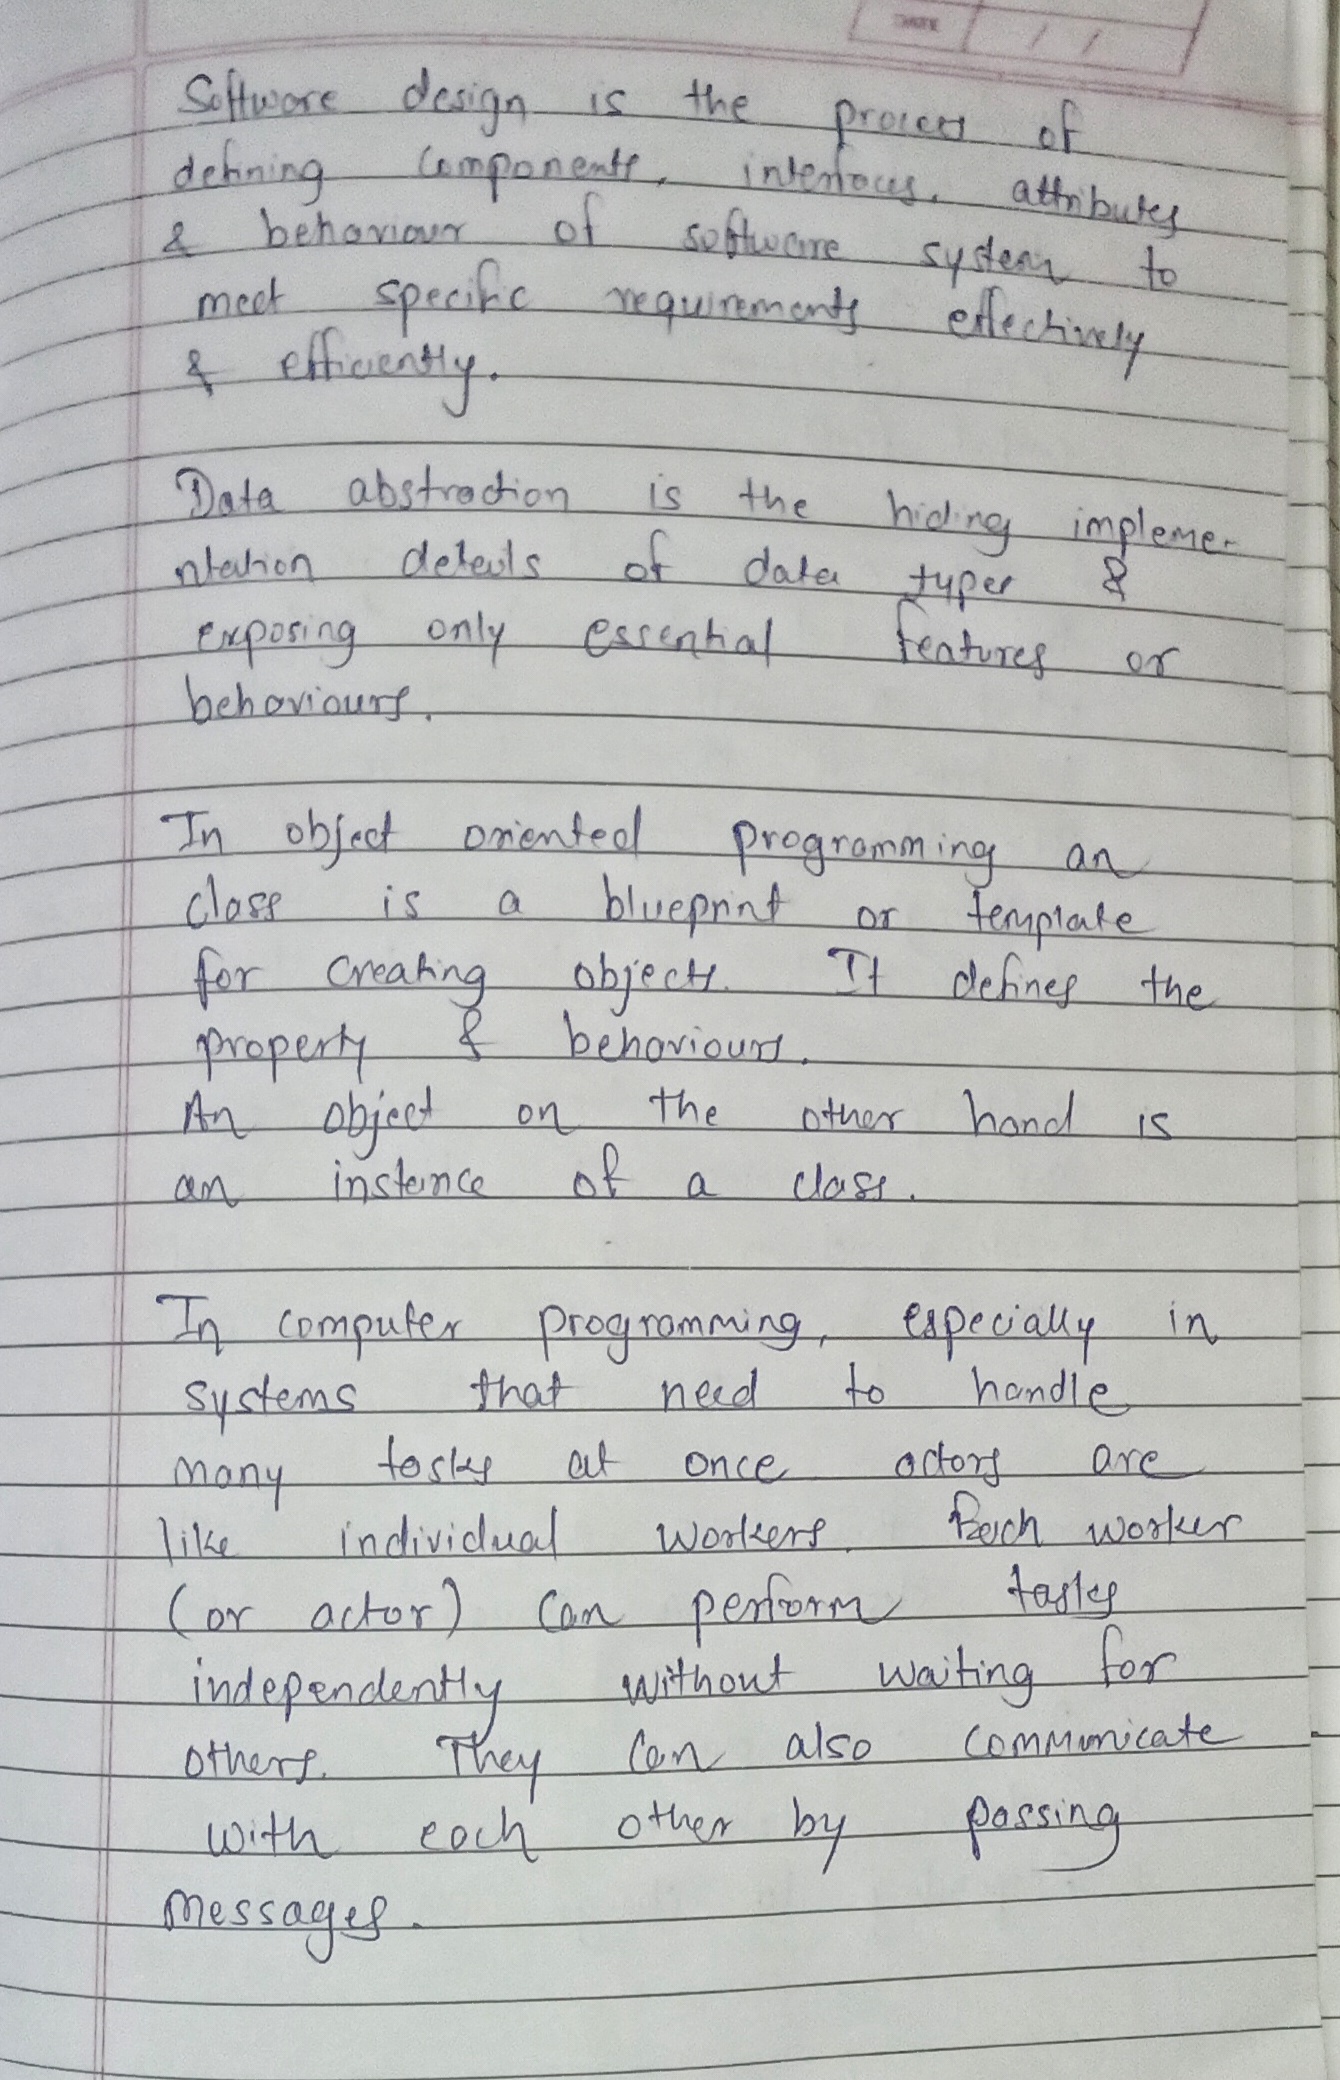 DATE / /
Software design is the process of
defining components, interfaces, attributes
& behaviour of software system to
meet specific requirements effectively
& efficiently.
Data abstraction is the hiding impleme-
ntation details of data types &
exposing only essential features or
behaviours.
In object oriented programming an
class is a blueprint or template
for creating objects. It defines the
property & behaviours.
An object on the other hand is
an instance of a class.
In computer programming, especially in
systems that need to handle
many tasks at once actors are
like individual workers. Each worker
(or actor) can perform tasks
independently without waiting for
others. They can also communicate
with each other by passing
messages.